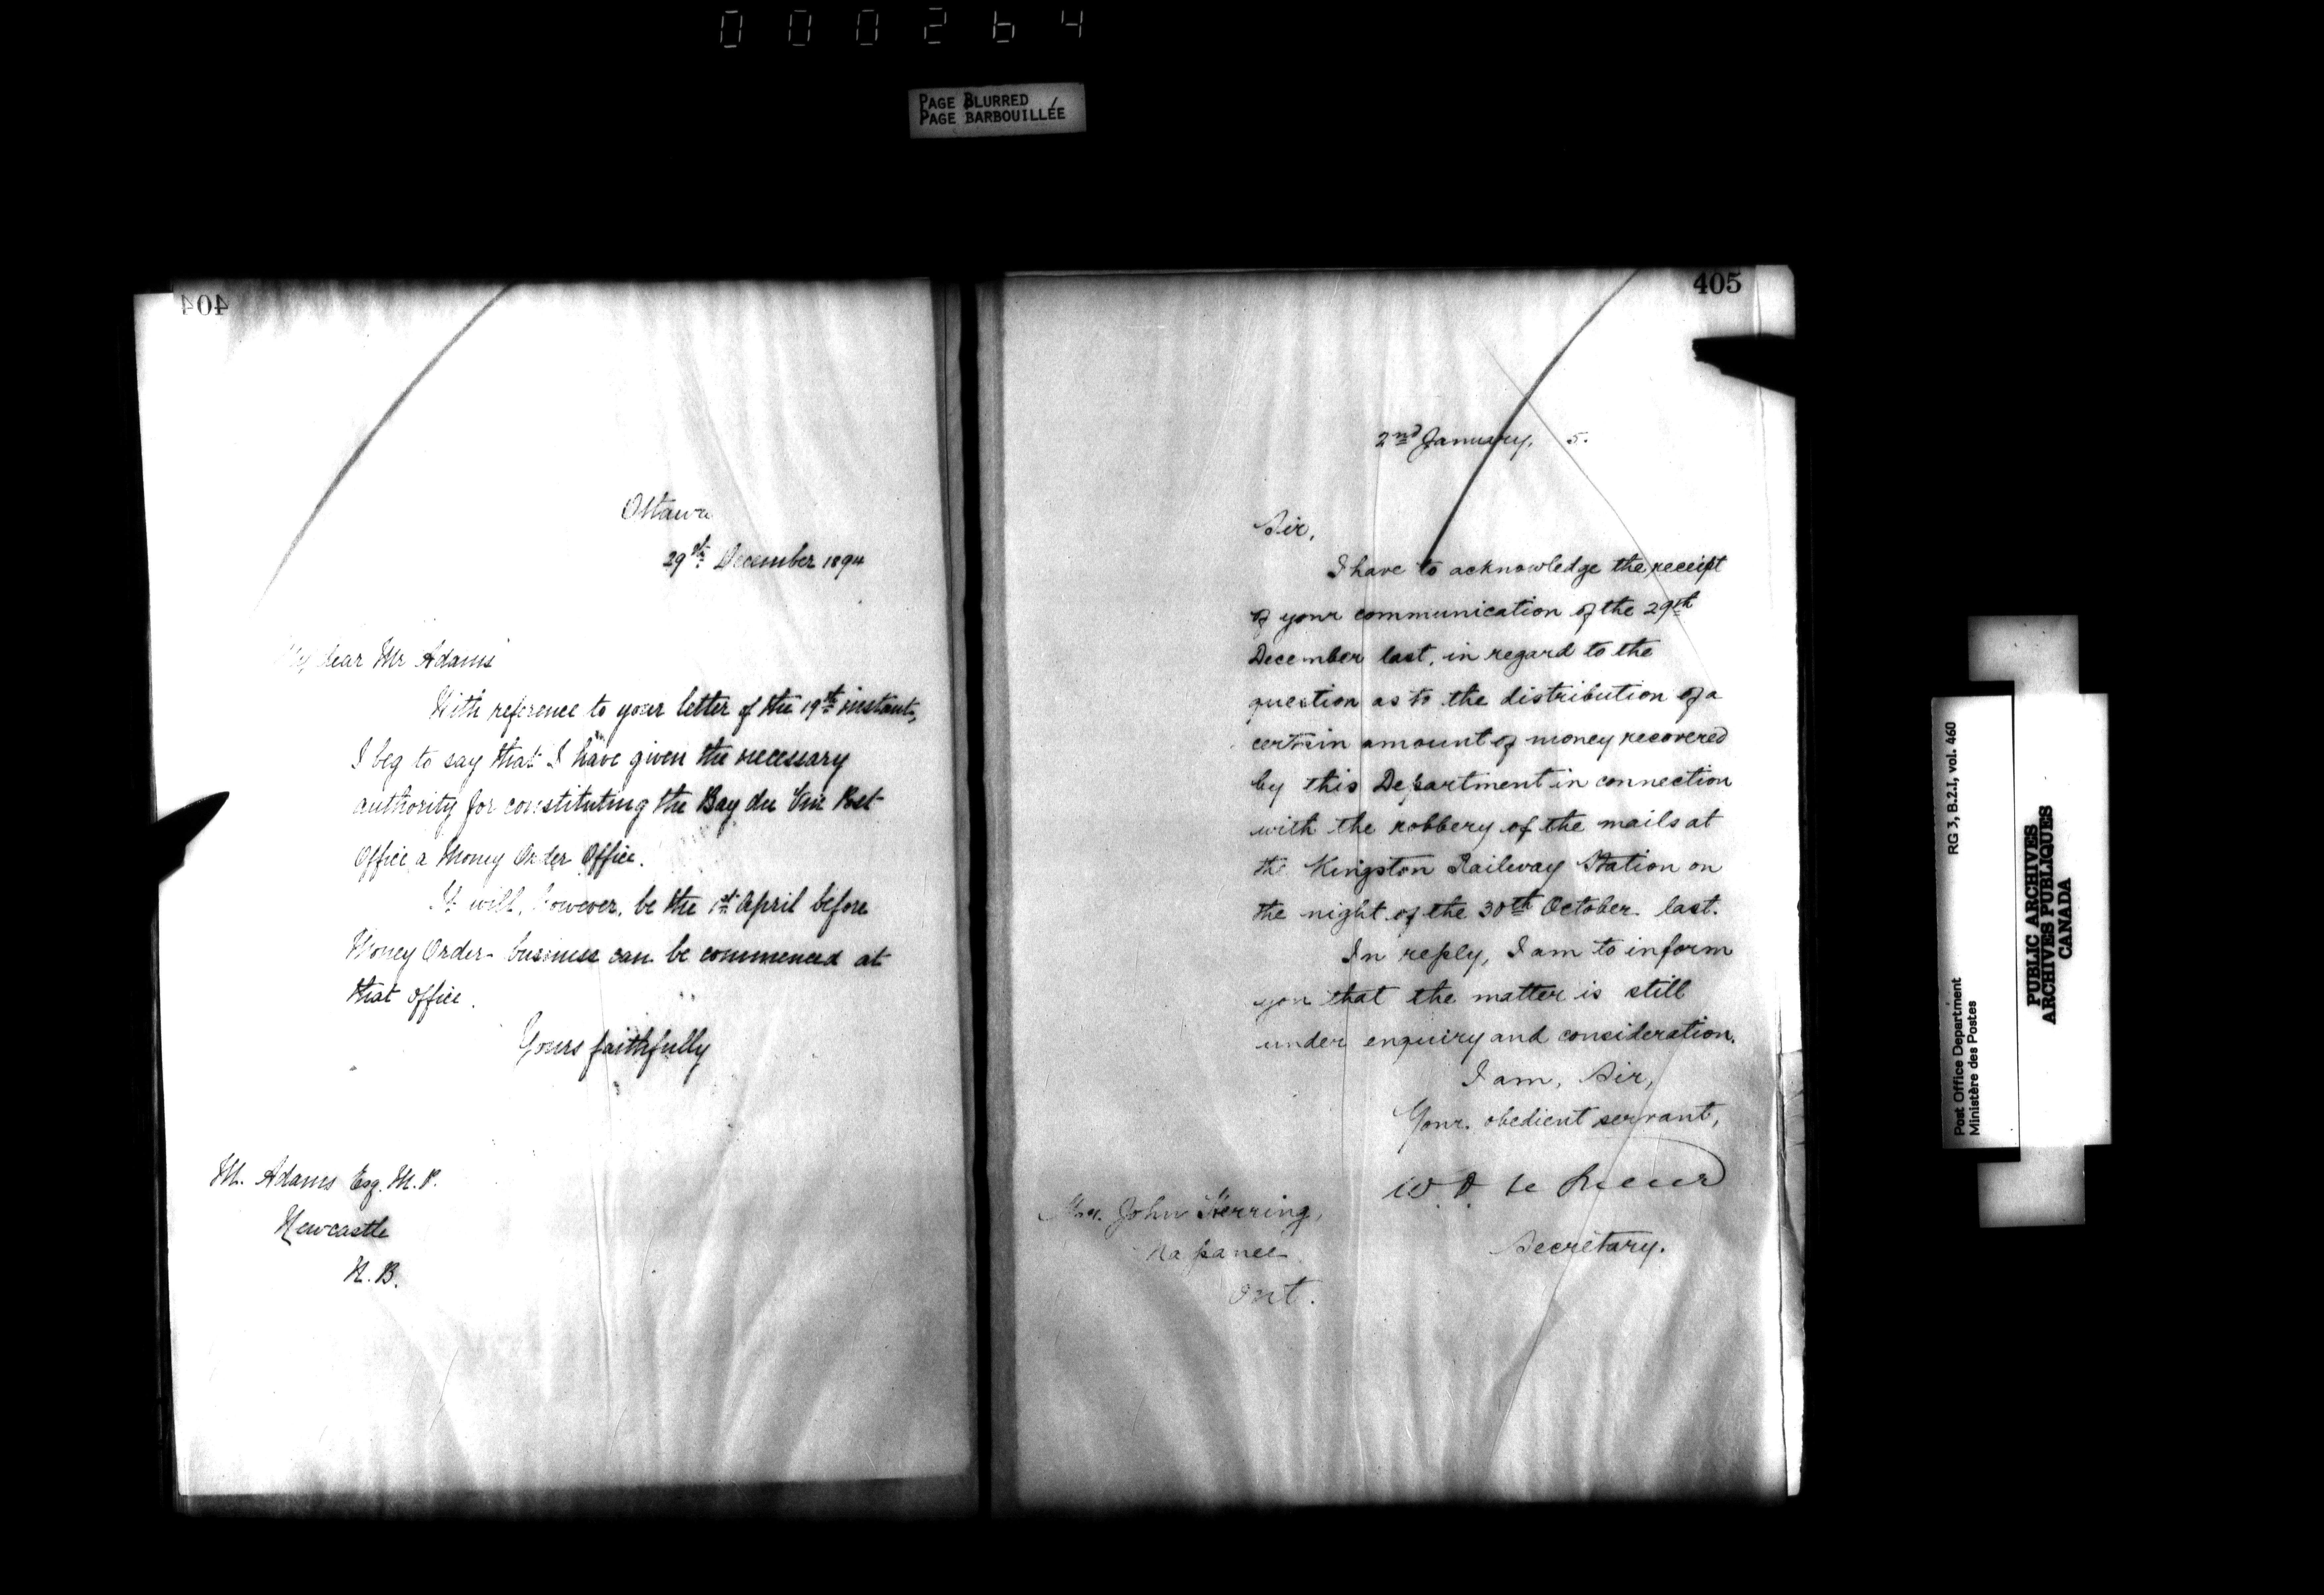 000264
PAGE BLURRED
PAGE BARBOUILLÉE
404
Ottawa
29th December 1894
My dear Mr Adams
With reference to your letter of the 19th instant,
I beg to say that I have given the necessary
authority for constituting the Bay du Vin Post
Office a Money Order Office.
It will, however, be the 1st April before
Money Order business can be commenced at
that office.
Yours faithfully
M. Adams Esq. M.P.
Newcastle
N.B.
405
2nd January, 5.
Sir,
I have to acknowledge the receipt
of your communication of the 29th
December last, in regard to the
question as to the distribution of a
certain amount of money recovered
by this Department in connection
with the robbery of the mails at
the Kingston Railway Station on
the night of the 30th October last.
In reply, I am to inform
you that the matter is still
under enquiry and consideration.
I am, Sir,
Your obedient servant,
W. D. Le Sueur
Secretary.
John Herring,
Napanee
Ont.
Post Office Department
Ministère des Postes
RG 3, B.2.I, vol. 460
PUBLIC ARCHIVES
ARCHIVES PUBLIQUES
CANADA